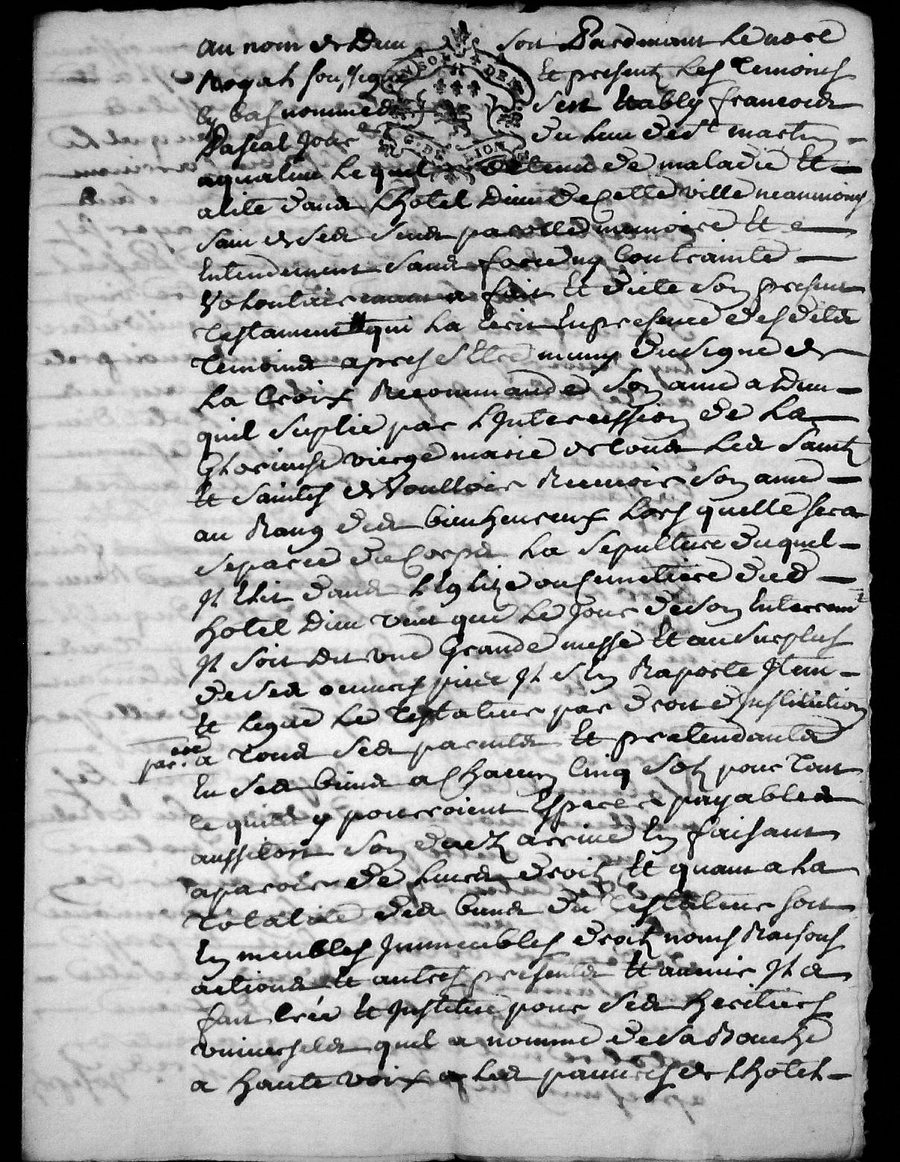 au nom de Dieu soit Pardevant le no.re
Royal sousigné Et present les temoins
cy bas nommes sest Etably francois
Pascal Jour du lieu de st martin
aqualieu lequel detenu de maladie Et
alité dans LHotel Dieu de Cette ville neaumoins
sain de ses sens parolle memoire Et
Entendement sans force ny Contrainte
volontairement a fait Et dicté son present
testament qui la Ecrit En presence desdits
temoins apres sEtre muny du signe de
La Croix Recommandé son ame a Dieu
quil suplie par LIntercession de La
Glorieuse vierge marie de tous Les saints
Et saintes de voulloir Recevoir son ame
au Rang des bienheureux Lors quelle sera
separée du Corps La sepulture duquel
Il Elit dans LEglize ou Cemetiere dud
Hotel Dieu veut que Le Jour de son Enterremt
Il soit dit une Grande messe Et au surplus
de ses oeuvres pies Il sen Raporte Item
Et Legue Le testateur par droit dInstitution
a tous ses parents Et pretendants
En ses biens a Chacun Cinq sols pour tout
ce quils y pourroient Esperer payables
aussitost son deces arrivé En faisant
aparoir de Leurs droits Et quant a La
totalité des biens du testateur soit
En meubles Immeubles droits noms Raisons
actions Et autres presents Et avenir Il a
fait Créé Et Institué pour ses heritiers
universels quil a nommé de sa Bouche
a Haute voix Les pauvres de LHotel